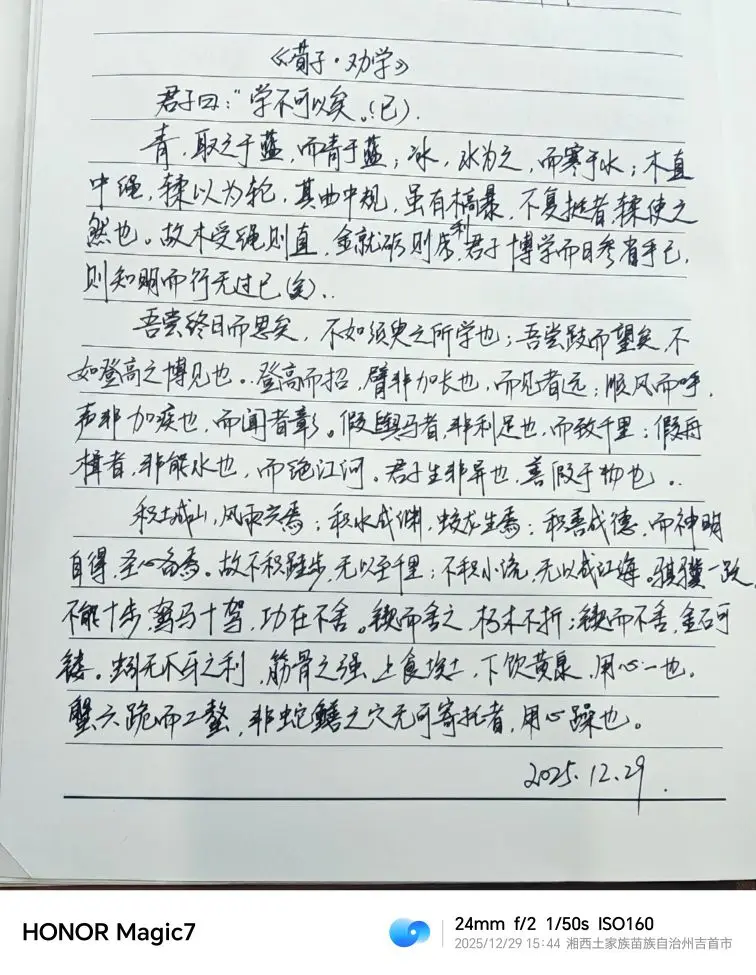 《荀子·劝学》
君子曰:“学不可以矣。(已).
青,取之于蓝,而青于蓝;冰,水为之,而寒于水;木直
中绳,輮以为轮,其曲中规,虽有槁暴,不复挺者,輮使之
然也。故木受绳则直,金就砺则利,君子博学而日参省乎己,
则知明而行无过已(矣)..
吾尝终日而思矣,不如须臾之所学也;吾尝跂而望矣,不
如登高之博见也..登高而招,臂非加长也,而见者远;顺风而呼,
声非加疾也,而闻者彰。假舆马者,非利足也,而致千里;假舟
楫者,非能水也,而绝江河。君子生非异也,善假于物也..
积土成山,风雨兴焉;积水成渊,蛟龙生焉;积善成德,而神明
自得,圣心备焉。故不积跬步,无以至千里;不积小流,无以成江海。骐骥一跃,
不能十步,驽马十驾,功在不舍。锲而舍之,朽木不折;锲而不舍,金石可
镂。蚓无爪牙之利,筋骨之强,上食埃土,下饮黄泉,用心一也.
蟹六跪而二螯,非蛇鳝之穴无可寄托者,用心躁也。
2025.12.29.
HONOR Magic7
24mm f/2 1/50s ISO160
2025/12/29 15:44 湘西土家族苗族自治州吉首市